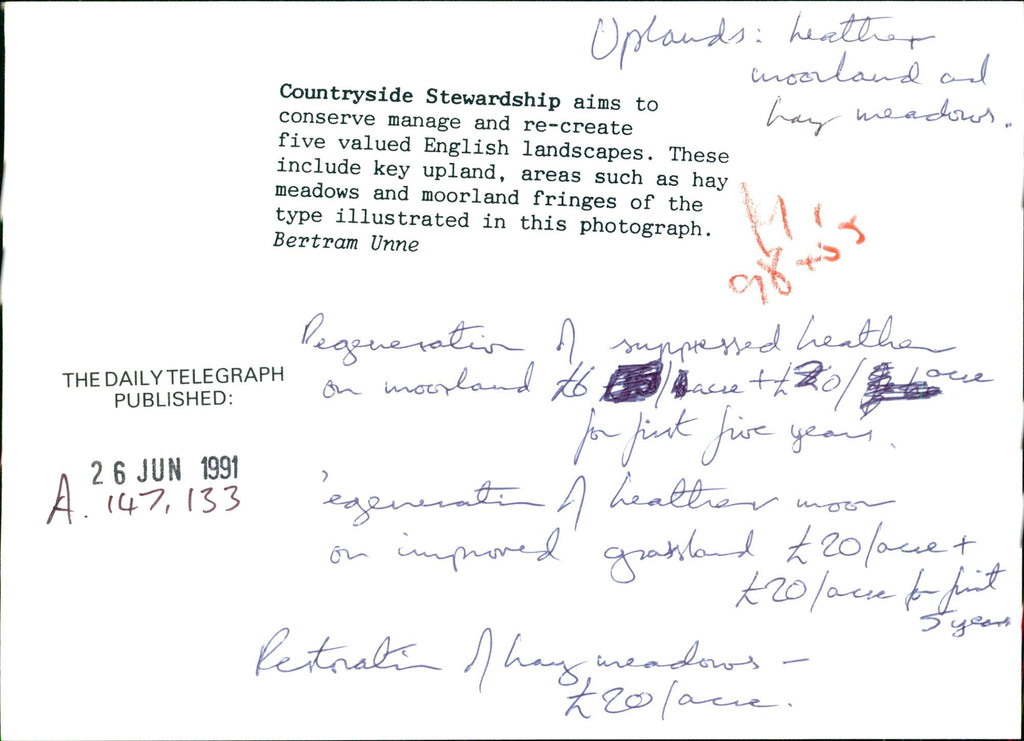 Uplands: heather
moorland and
hay meadows.
Countryside Stewardship aims to
conserve manage and re-create
five valued English landscapes. These
include key upland, areas such as hay
meadows and moorland fringes of the
type illustrated in this photograph.
Bertram Unne
98
Regeneration of suppressed heather
on moorland £6 /acre + £20/ acre
for first five years.
THE DAILY TELEGRAPH
PUBLISHED:
26 JUN 1991
A. 147,133
'egeneration of heather moor
on improved grassland £20/acre +
£20/acre for first
5 years
Restoration of hay meadows –
£20/acre.